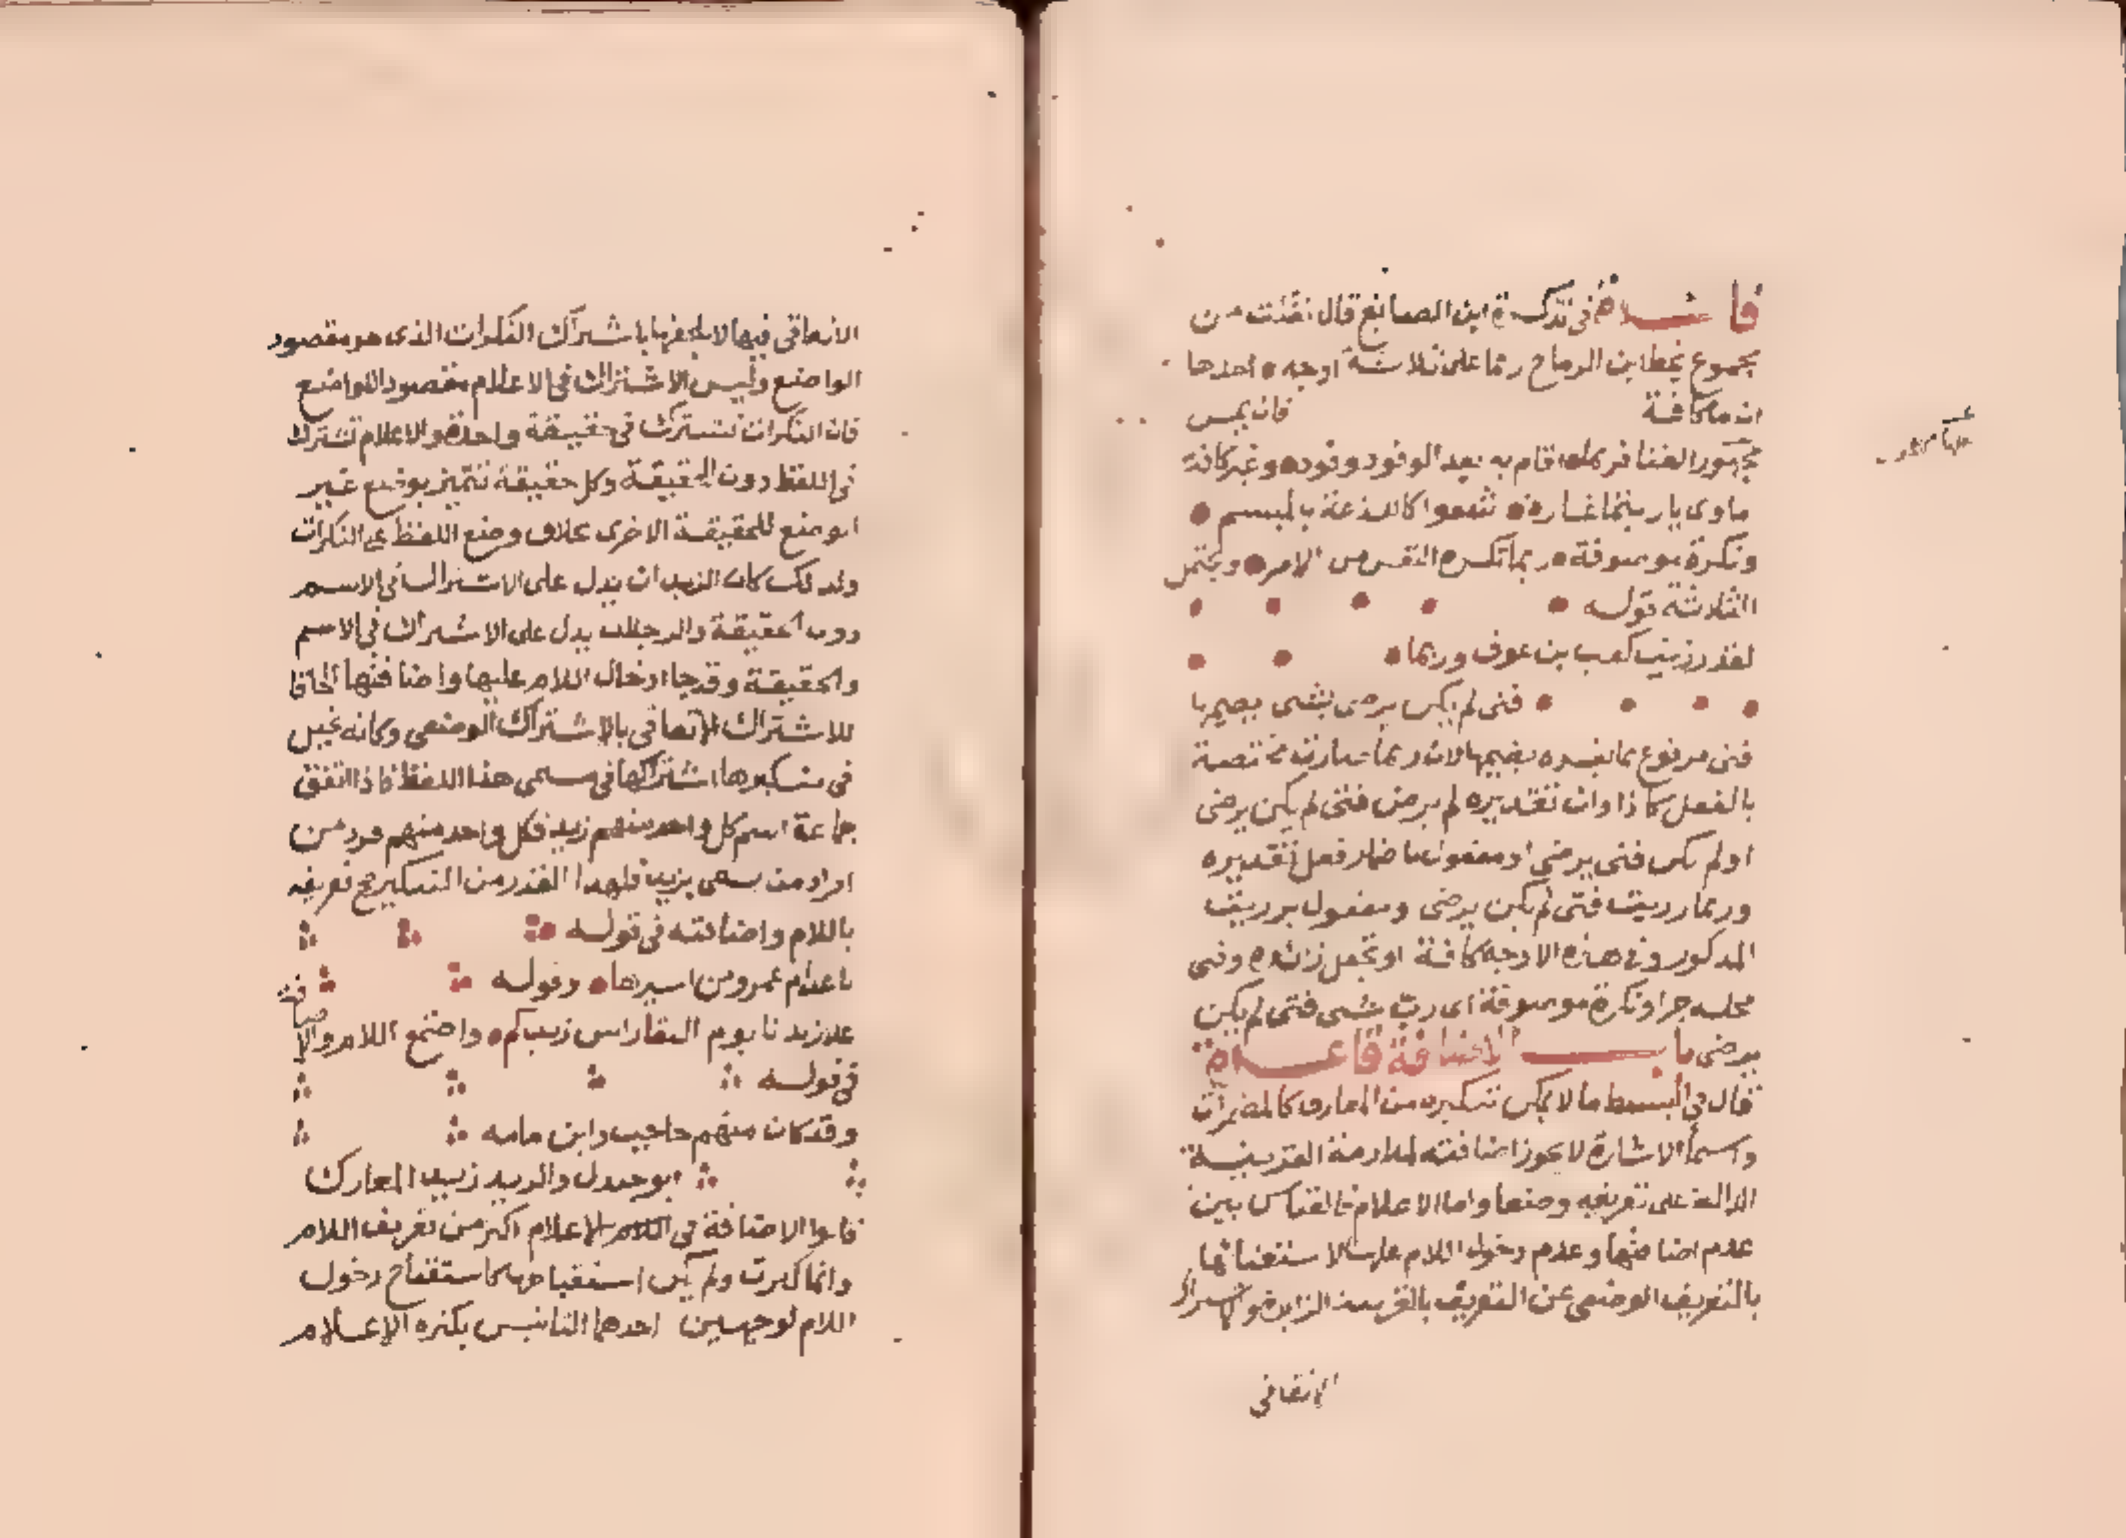 فائدة في تذكرة ابن الصائغ قال نقلت من
مجموع بخط ابن الرماح ربما على ثلاثة اوجه احدها
ان ما كافة فان يمس
مهجور الفنا فربما اقام به بعد الوفود وفود وغير كافة
ماوى يا ربتما غارة شعوا كاللذعة بالميسم
ونكرة موصوفة ربما تكره النفس من الامر ويحتمل
الثلاثة قوله
لقد رزيت كعب بن عوف وربما
فتى لم يكن يرضى بشى يضيمها
فتى مرفوع بما يفسره يضيمها لان ربما صارت مختصة
بالفعل كاذا وان تقديره لم يرض فتى لم يكن يرضى
اولم يكن فتى يرضى او مفعول باضمار فعل تقديره
وربما رزيت فتى لم يكن يرضى ومفعول برزيت
المذكور وفي هذه الاوجه كافة او تجعل زائدة وفتى
محله جر او نكرة موصوفة اى رب شى فتى لم يكن
يرضى باب الاضافة قاعدة
قال في البسيط ما لا يمكن تنكيره من المعارف كالمضمرات
واسما الاشارة لا يجوز اضافته لملازمة القرينة
الدالة على تعريفه وضعا واما الاعلام فالقياس بين
عدم اضافتها وعدم دخول اللام عليها لاستغنائها
بالتعريف الوضعى عن التعريف بالقرينة الزايدة والاشتراك
الاتفاقي
الاتفاقى فيها لا يلحقها باشتراك النكرات الذى هو مقصود
الواضع وليس الاشتراك في الاعلام مقصود اللواضع
فان النكرات تشترك في حقيقة واحدة والاعلام تشترك
في اللفظ دون الحقيقة وكل حقيقة تتميز بوضع غير
الوضع للحقيقة الاخرى بخلاف وضع اللفظ على النكرات
ولذلك كان الزيدان يدل على الاشتراك في الاسم
دون الحقيقة والرجلان يدل على الاشتراك في الاسم
والحقيقة وقد جا ادخال اللام عليها واضافتها الحاقا
للاشتراك الاتفاقي بالاشتراك الوضعى وكانه تخيل
في تنكيرها اشتراكها في مسمى هذا اللفظ فاذا اتفق
جماعة اسم كل واحد منهم زيد فكل واحد منهم فرد من
افراد من يسمى بزيد فلهذا القدر من التنكير صح تعريفه
باللام واضافته في قوله
باعد ام عمرو من اسيرها وقوله
علا زيدنا يوم النقا راس زيدكم واجتمع اللام والاضافة
في قوله
وقد كان منهم حاجب وابن مامه
ابو جندل والزيد زيد المعارك
قالوا الاضافة في الاعلام اكثر من تعريف اللام
وانما كثرت ولم يكن استقباحها كاستقباح دخول
اللام لوجهين احدهما التانيس بكثرة الاعلام